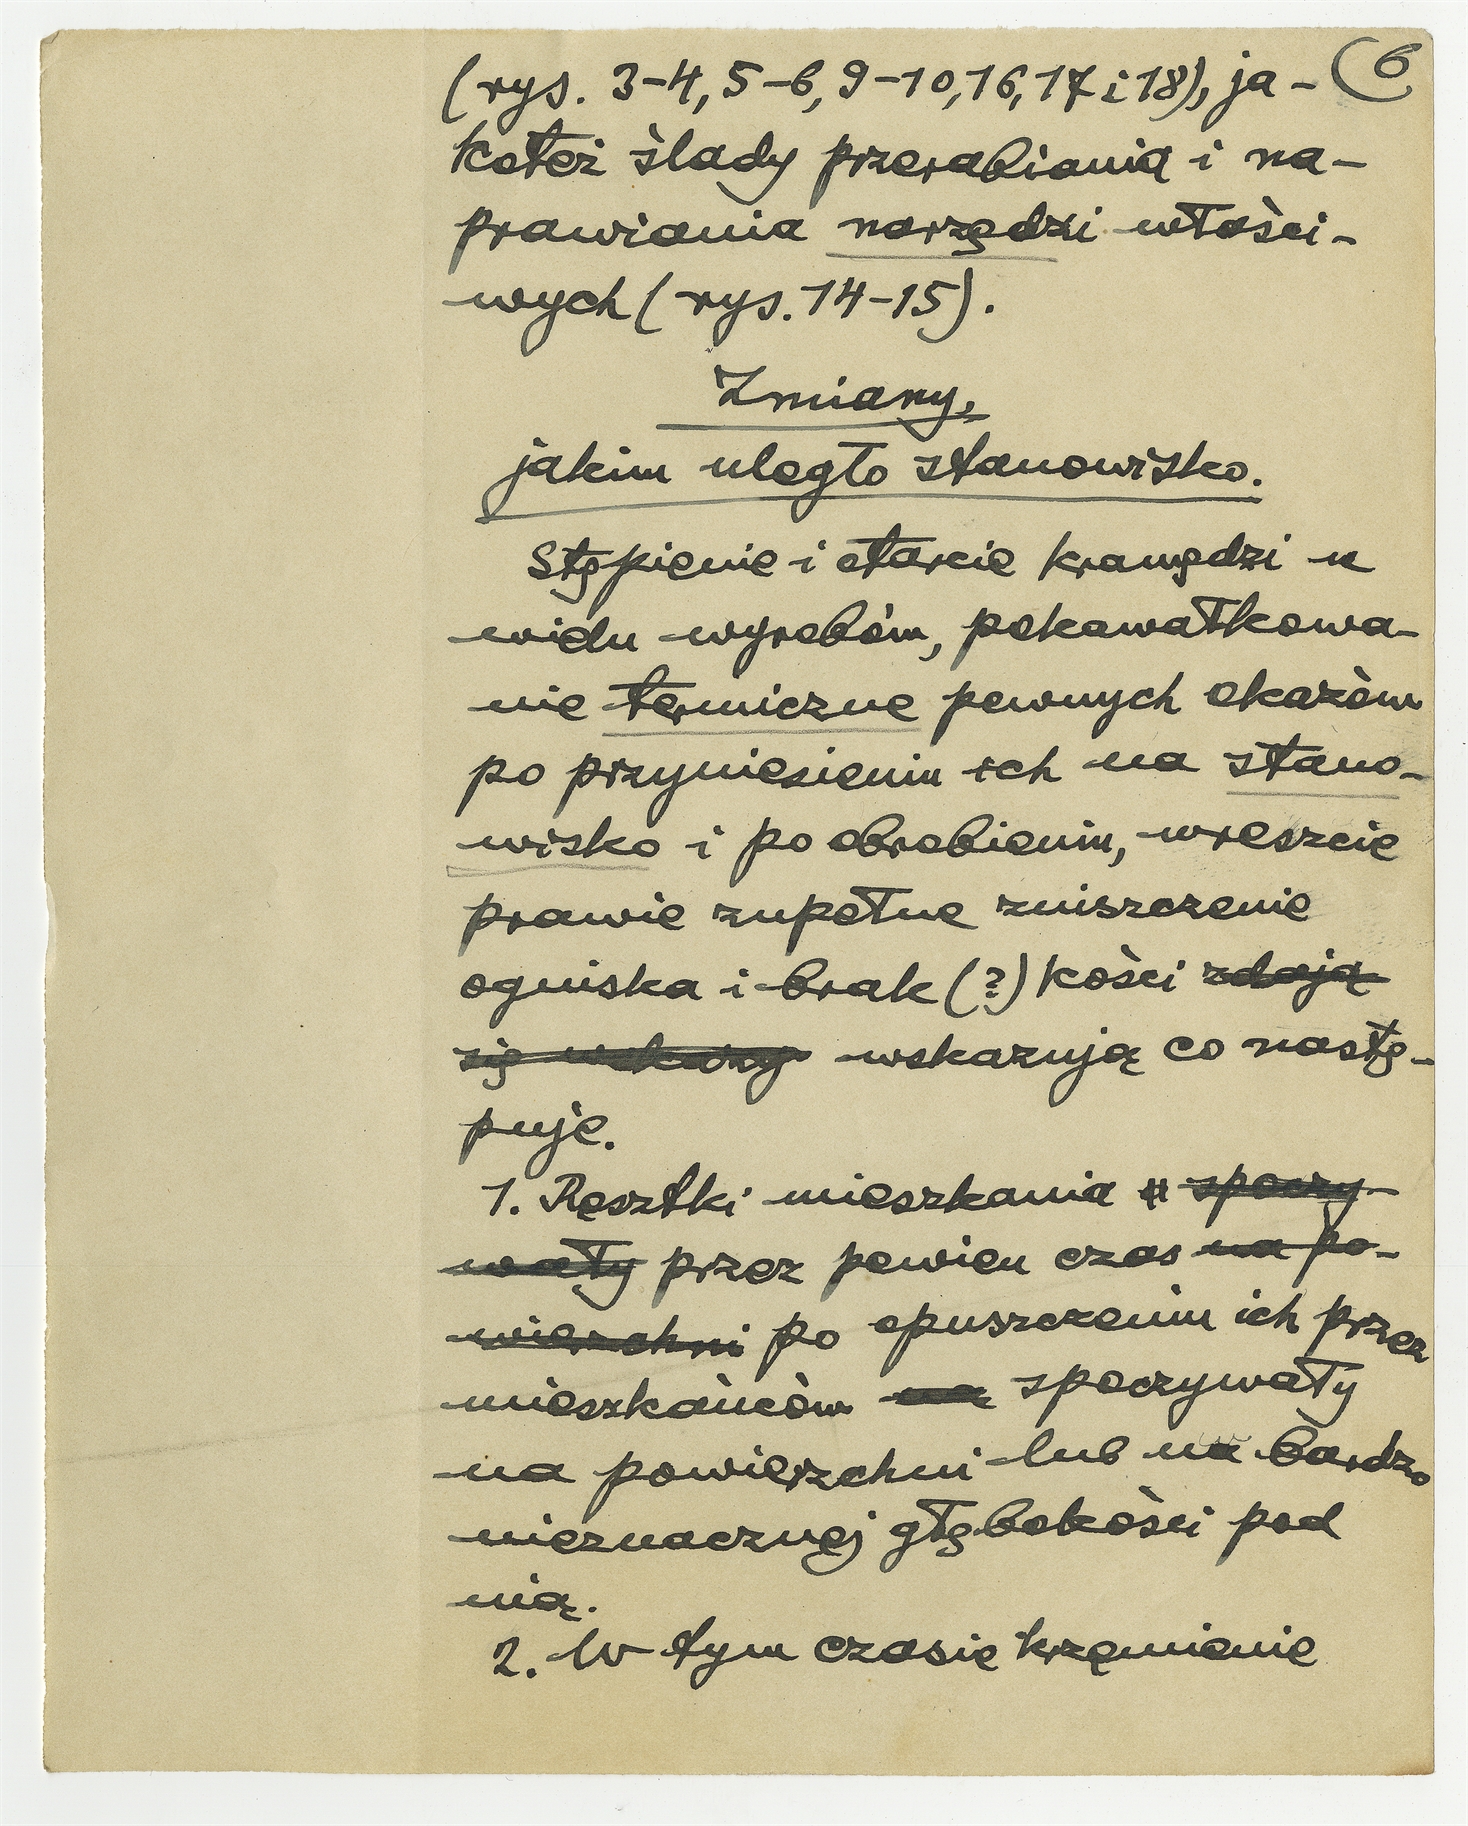 (rys. 3-4, 5-6, 9-10, 16, 17 i 18), ja- 6
koteż ślady przerabiania i na-
prawiania narzędzi właści-
wych (rys. 14-15).
Zmiany,
jakim uległo stanowisko.
Stępienie i starcie krawędzi u
wielu wyrobów, pokawałkowa-
nie termiczne pewnych okazów
po przyniesieniu ich na stano-
wisko i po obrobieniu, wreszcie
prawie zupełne zniszczenie
ogniska i brak (?) kości zdają
się wskazy wskazują co nastę-
puje.
1. Resztki mieszkania spoczy-
wały przez pewien czas na po-
wierzchni po opuszczeniu ich przez
mieszkańców na spoczywały
na powierzchni lub na bardzo
nieznacznej głębokości pod
nią.
2. W tym czasie krzemienie